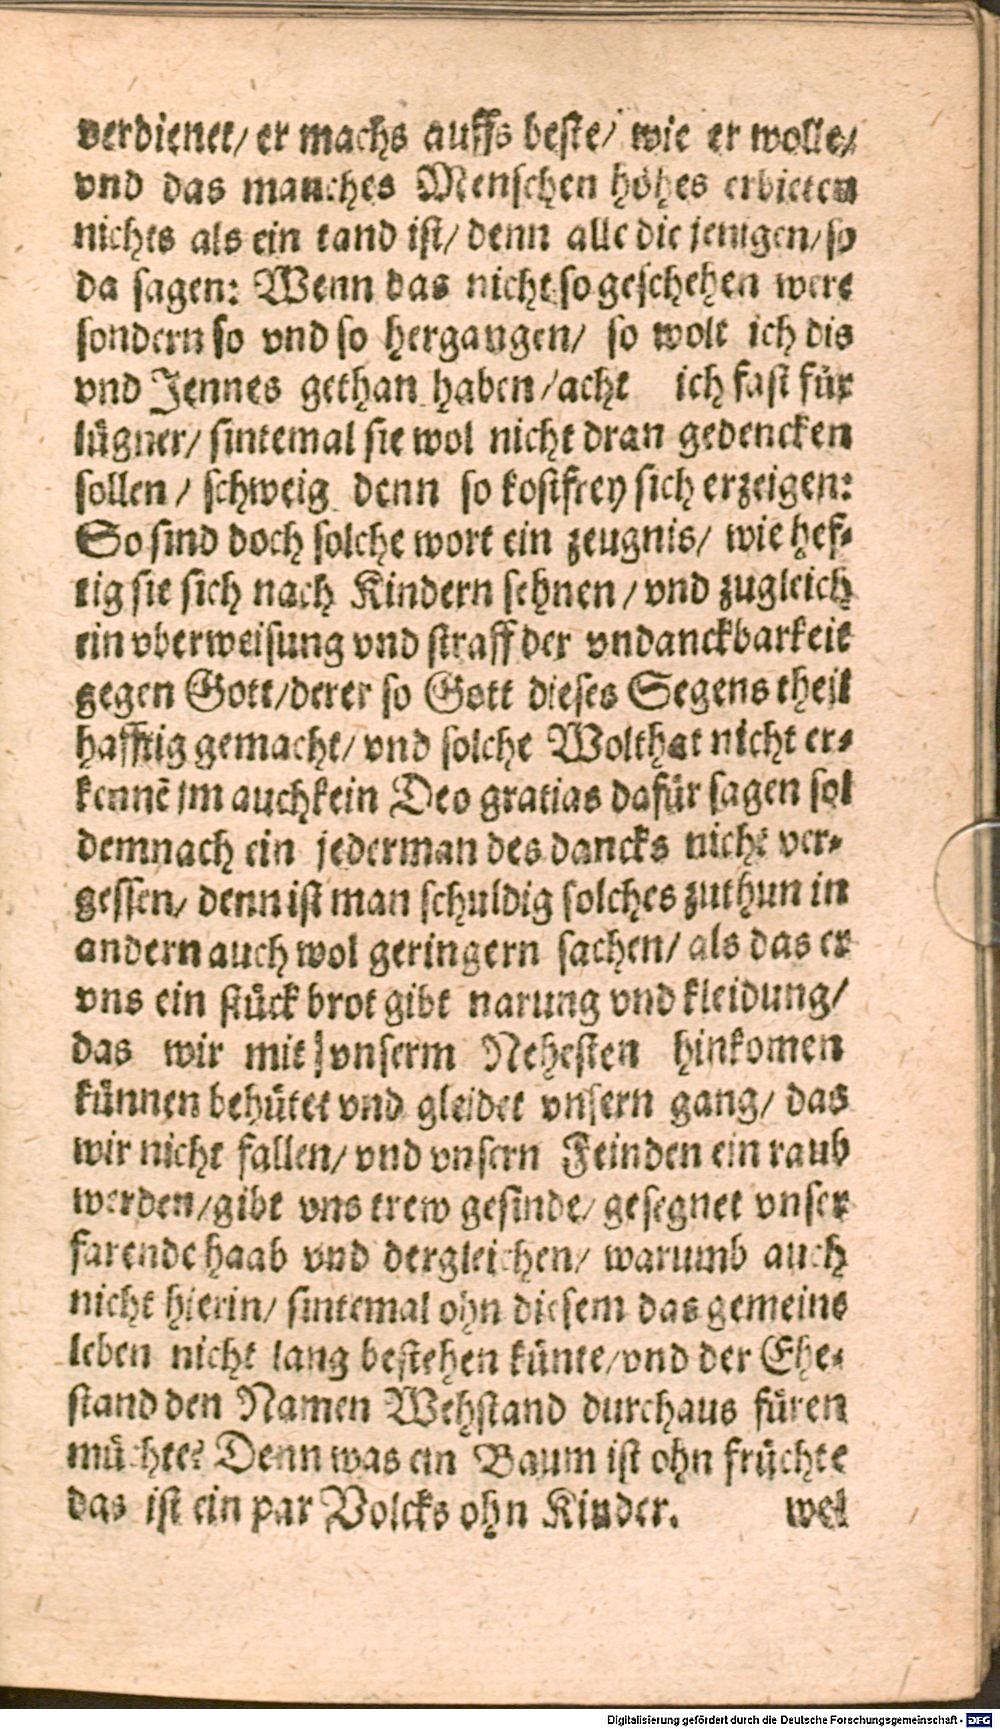 verdienet/ er machs auffs beste/ wie er wolle/
vnd das manches Menschen hohes erbieten
nichts als ein tand ist/ denn alle die jenigen/ so
da sagen: Wenn das nicht so geschehen were
sondern so vnd so hergangen/ so wolt ich dis
vnd Jennes gethan haben/ acht ich fast für
lügner/ sintemal sie wol nicht dran gedencken
sollen/ schweig denn so kostfrey sich erzeigen:
So sind doch solche wort ein zeugnis/ wie hef-
tig sie sich nach Kindern sehnen/ vnd zugleich
ein vberweisung vnd straff der vndanckbarkeit
gegen Gott/ derer so Gott dieses Segens theil
hafftig gemacht/ vnd solche Wolthat nicht er-
kennẽ jm auch kein Deo gratias dafür sagen sol
demnach ein jederman des dancks nicht ver-
gessen/ denn ist man schuldig solches zuthun in
andern auch wol geringern sachen/ als das er
vns ein stück brot gibt narung vnd kleidung/
das wir mit vnserm Nehesten hinkomen
künnen behütet vnd gleidet vnsern gang/ das
wir nicht fallen/ vnd vnsern Feinden ein raub
werden/ gibt vns trew gesinde/ gesegnet vnser
farende haab vnd dergleichen/ warumb auch
nicht hierin/ sintemal ohn diesem das gemeine
leben nicht lang bestehen künte/ vnd der Ehe-
stand den Namen Wehstand durchaus füren
müchte? Denn was ein Baum ist ohn früchte
das ist ein par Volcks ohn Kinder. wel
Digitalisierung gefördert durch die Deutsche Forschungsgemeinschaft - DFG